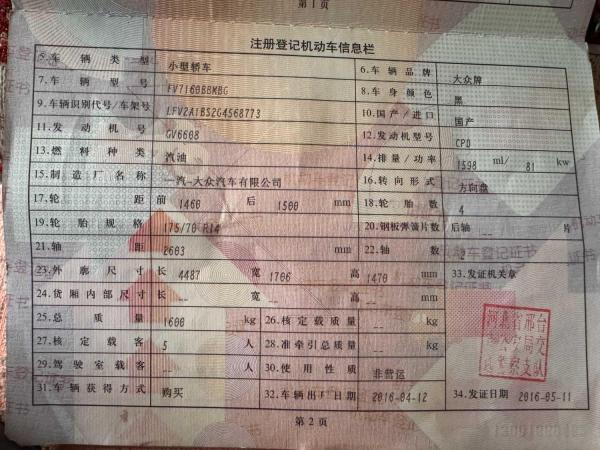 第1页
注册登记机动车信息栏
5.车辆类型 小型轿车 6.车辆品牌 大众牌
7.车辆型号 FV7160BBMBG 8.车身颜色 黑
9.车辆识别代号/车架号 LFV2A1BS2G4568773 10.国产/进口 国产
11.发动机号 GV6608 12.发动机型号 CPD
13.燃料种类 汽油 14.排量/功率 1598 ml/ 81 kw
15.制造厂名称 一汽-大众汽车有限公司 16.转向形式 方向盘
17.轮距 前 1460 后 1500 mm 18.轮胎数 4
19.轮胎规格 175/70 R14 20.钢板弹簧片数 后轴 -- 片
21.轴距 2603 mm 22.轴数 2
23.外廓尺寸 长 4487 宽 1706 高 1470 mm 33.发证机关章
24.货厢内部尺寸 长 -- 宽 -- 高 -- mm
25.总质量 1600 kg 26.核定载质量 -- kg
27.核定载客 5 人 28.准牵引总质量 -- kg
29.驾驶室载客 -- 人 30.使用性质 非营运
31.车辆获得方式 购买 32.车辆出厂日期 2016-04-12 34.发证日期 2016-05-11
第2页